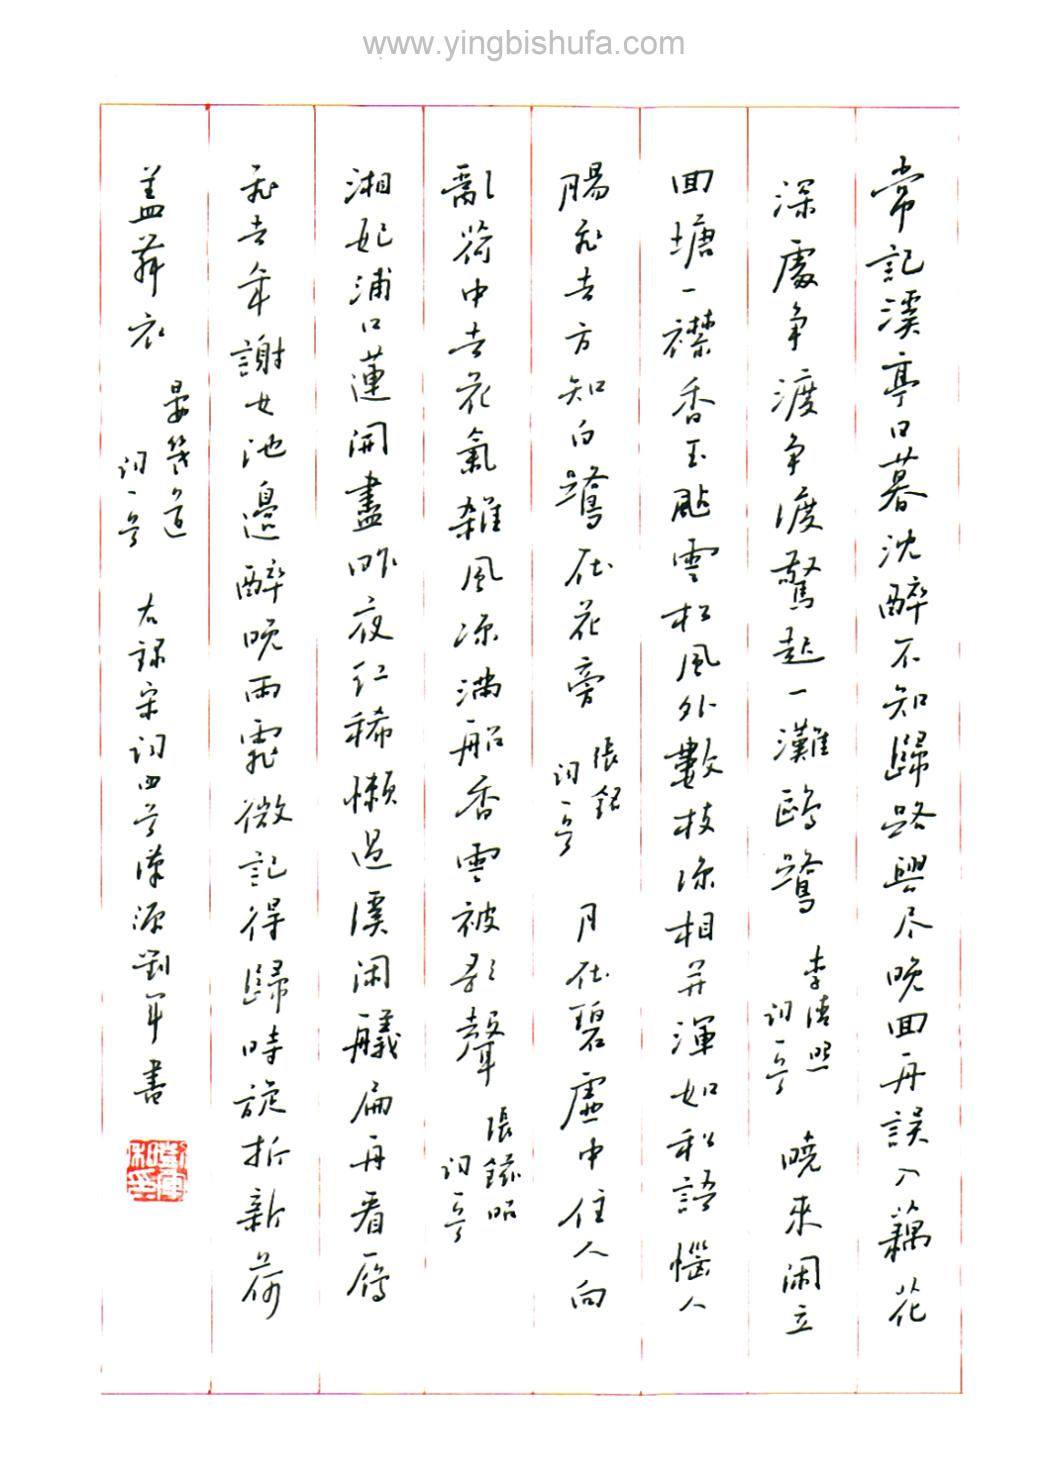 www.yingbishufa.com
常記溪亭日暮沈醉不知歸路興尽晚回再誤入藕花
深處争渡争渡驚起一灘鷗鷺 李清照詞一首 曉來闲立
回塘一襟香玉颭雲松風外數枝凉相并渾如私語惱人
腸飛去方知白鷺在花旁 張鎡詞一首 月在碧虛中住人向
亂荷中去花氣雜風凉满船香雲被歌聲
湘妃浦口蓮開盡昨夜红稀懒過溪闲艤扁舟看雁
飛去年謝女池邊醉晚雨霏微記得歸時旋折新荷
盖舞衣 晏幾道詞一首 右録宋詞四首 源劉军書